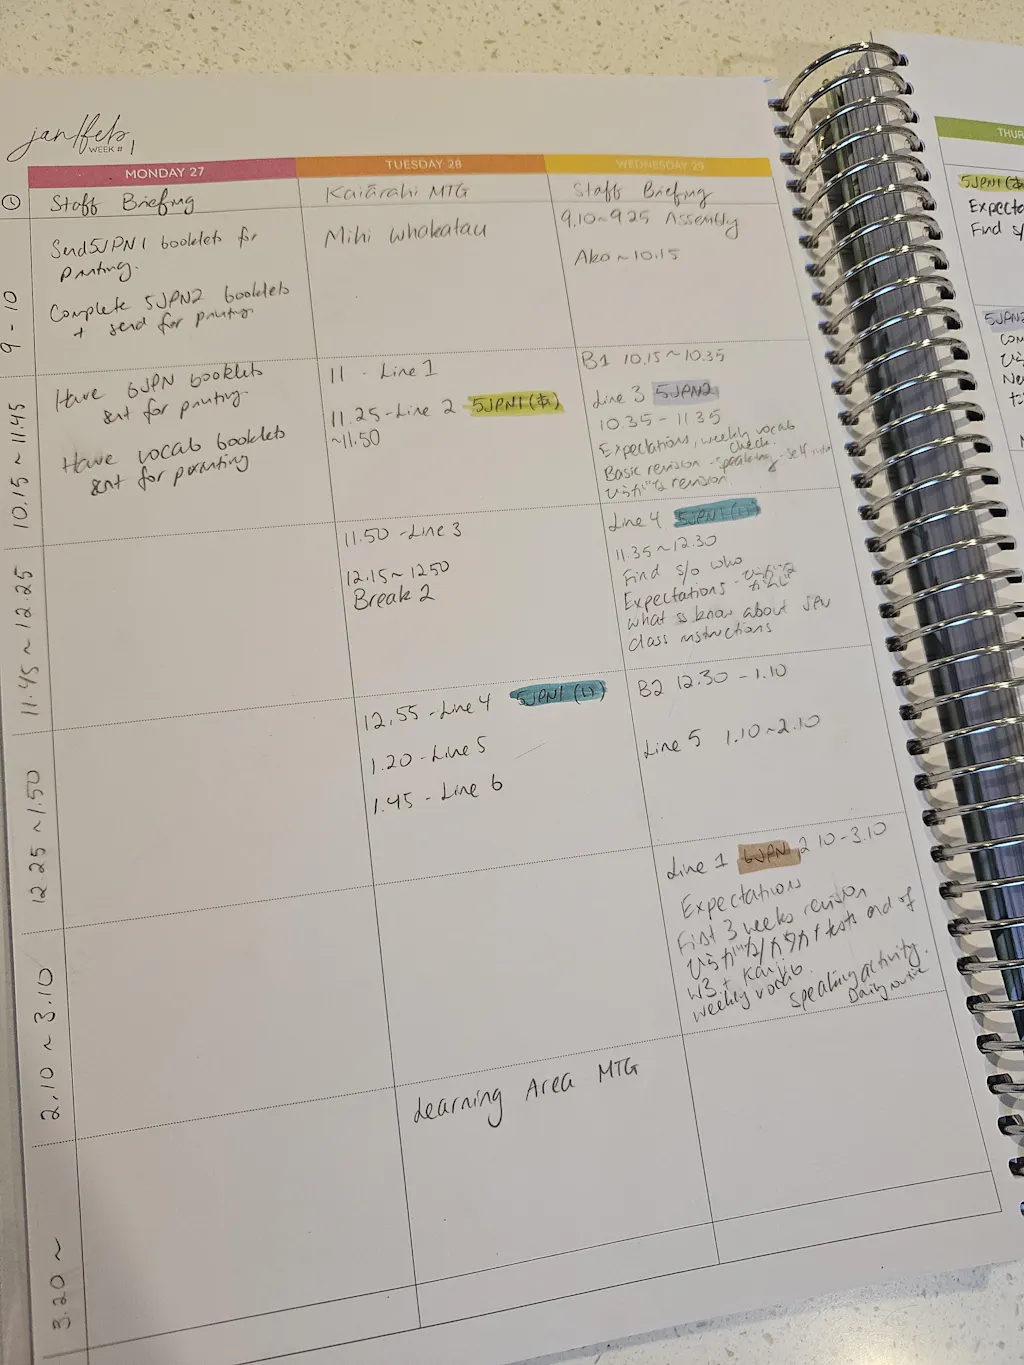 jan/feb
WEEK # 1
MONDAY 27
Staff Briefing
Send 5JPN1 booklets for
printing.
Complete 5JPN2 booklets
+ send for printing
Have 6JPN booklets
sent for printing.
Have vocab booklets
sent for printing
TUESDAY 28
Kaiārahi MTG
Mihi whakatau
11 - Line 1
11.25 - Line 2 5JPN1 (
~11.50
11.50 - Line 3
12.15 ~ 12.50
Break 2
12.55 - Line 4 5JPN1 (リ)
1.20 - Line 5
1.45 - Line 6
Learning Area MTG
WEDNESDAY 29
Staff Briefing
9.10 ~ 9.25 Assembly
Ako ~ 10.15
B1 10.15 ~ 10.35
Line 3 5JPN2
10.35 - 11.35
Expectations, weekly vocab
check.
Basic revision - speaking - self intro
ひらがな revision.
Line 4 5JPN1 (リ)
11.35 ~ 12.30
Find s/o who
Expectations - ひらがな
what ss know about JPN
class instructions
B2 12.30 - 1.10
Line 5 1.10 ~ 2.10
Line 1 6JPN1 2.10 - 3.10
Expectations
First 3 weeks revision
ひらがな/カタカナ tests end of
W3. + Kanji
weekly vocab.
Speaking activity.
Daily routine
9 - 10
10.15 ~ 11.45
11.45 ~ 12.25
12.25 ~ 1.50
2.10 ~ 3.10
3.20 ~
THUR
5JPN1
Expecta
Find s/
5JPN2